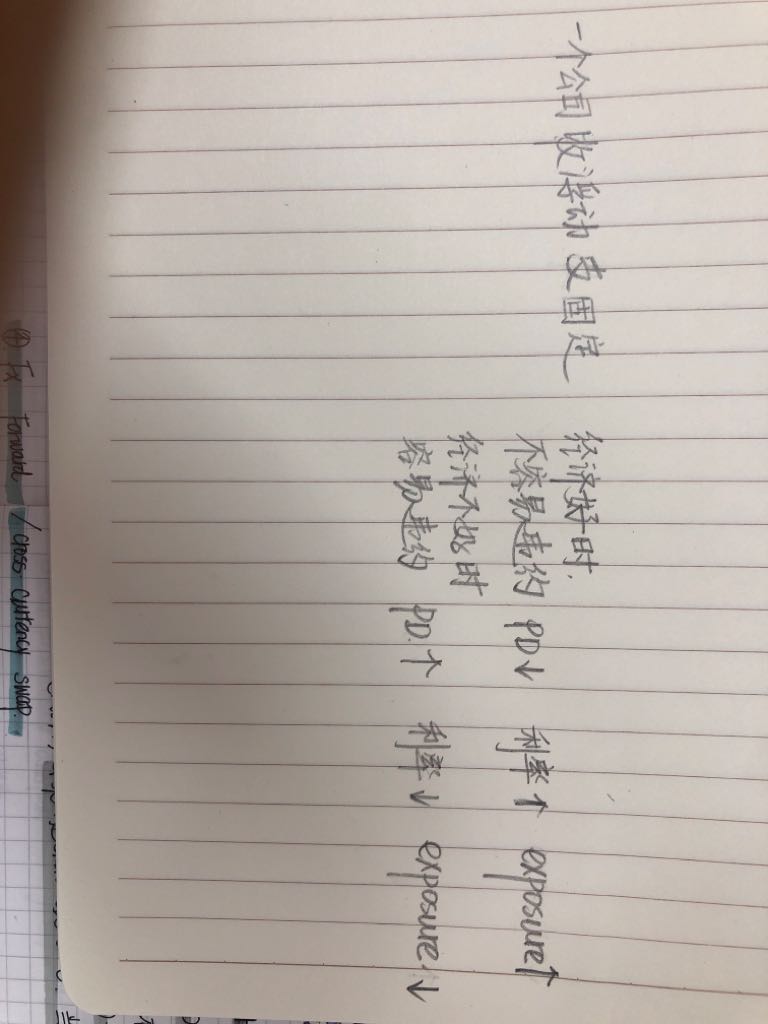 一个公司 收浮动 支固定
经济好时.
不容易违约 PD↓ 利率↑ exposure↑
经济不好时
容易违约 PD.↑ 利率↓ exposure.↓
④ Fx Forward / cross currency swap.